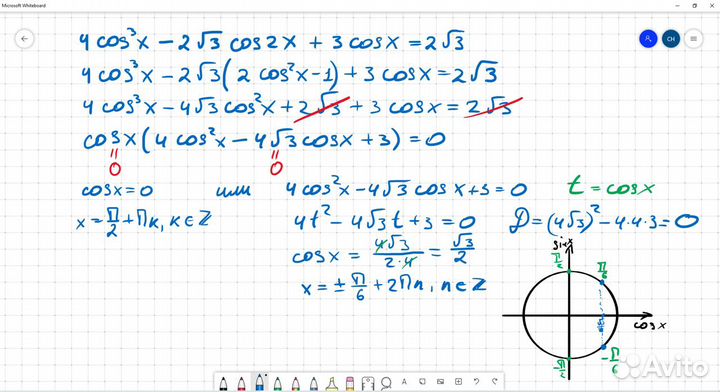 Microsoft Whiteboard
CH
4 cos³x − 2√3 cos2x + 3 cosx = 2√3
4 cos³x − 2√3 (2 cos²x−1) + 3 cosx = 2√3
4 cos³x − 4√3 cos²x + 2√3 + 3 cosx = 2√3
cosx (4 cos²x − 4√3 cosx + 3) = 0
0 0
cosx=0 или 4 cos²x − 4√3 cosx + 3 = 0 t = cosx
x = π/2 + πk, k∈ℤ 4t² − 4√3 t + 3 = 0 D = (4√3)² − 4·4·3 = 0
cosx = 4√3/2·4 = √3/2
x = ± π/6 + 2πn, n∈ℤ
sinx
π/2 π/6
cosx
−π/2 −π/6
Avito